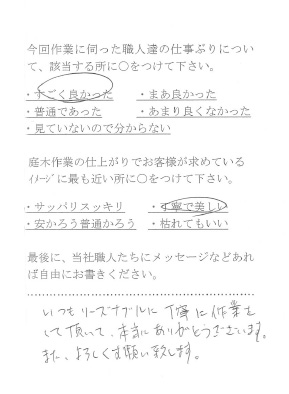 今回作業に伺った職人達の仕事ぶりについ
て、該当する所に○をつけて下さい。
・すごく良かった ・まあ良かった
・普通であった ・あまり良くなかった
・見ていないので分からない
庭木作業の仕上がりでお客様が求めている
ｲﾒｰｼﾞに最も近い所に○をつけて下さい。
・サッパリスッキリ ・丁寧で美しい
・安かろう普通かろう ・枯れてもいい
最後に、当社職人たちにメッセージなどあれ
ば自由にお書きください。
いつもリーズナブルに丁寧に作業を
して頂いて、本当にありがとうございます。
また、よろしくお願い致します。